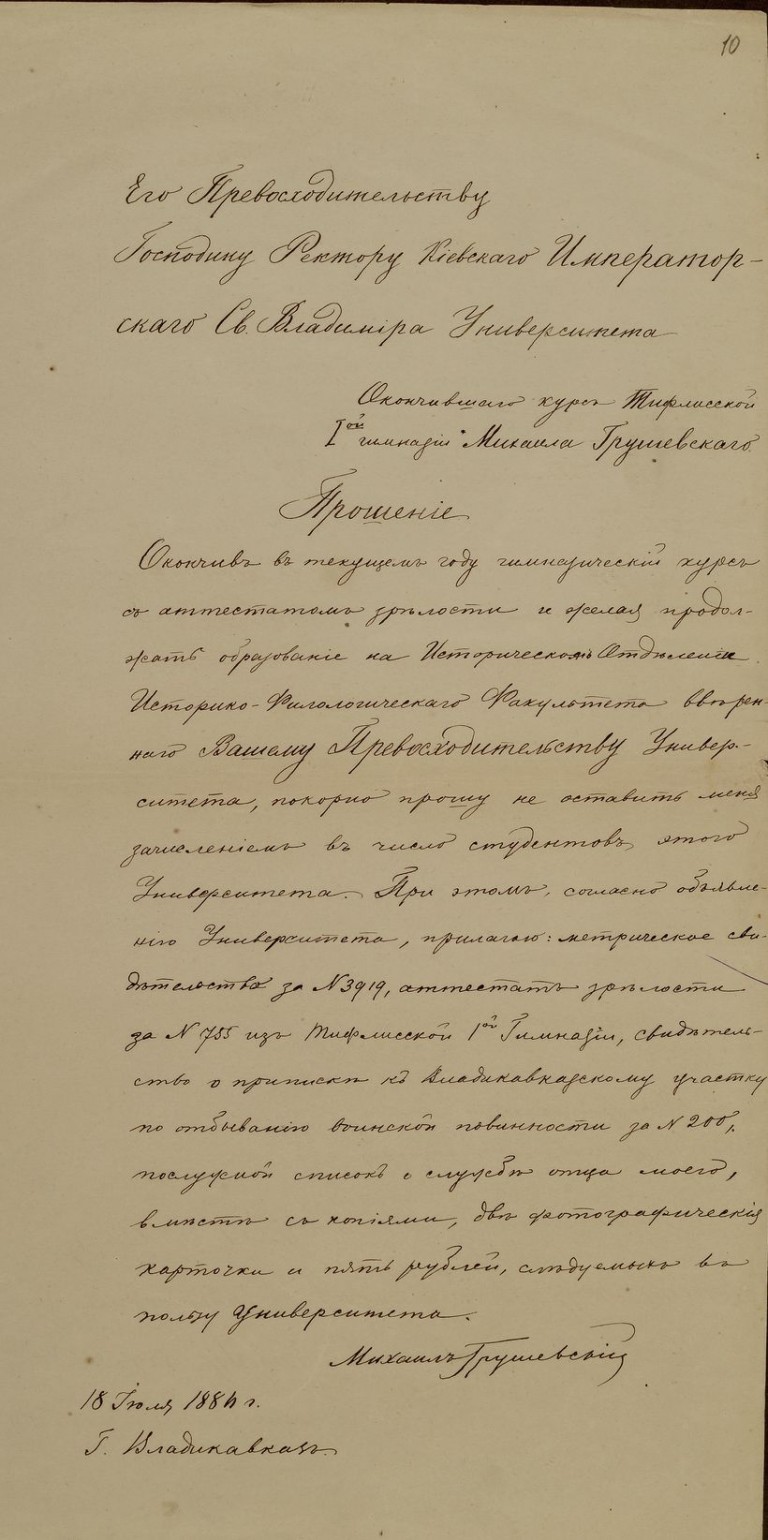 10
Его Превосходительству
Господину Ректору Кіевскаго Император-
скаго Св. Владиміра Университета
Окончившаго курсъ Тифлисской
Iой гимназіи Михаила Грушевскаго.
Прошеніе
Окончивъ въ текущемъ году гимназическій курсъ
съ аттестатомъ зрѣлости и желая продол-
жать образованіе на Историческомъ Отдѣленіи
Историко-Филологическаго Факультета ввѣрен-
наго Вашему Превосходительству Универ-
ситета, покорно прошу не оставить меня
зачисленіемъ въ число студентовъ этого
Университета. При этомъ, согласно объявле-
нію Университета, прилагаю: метрическое сви-
дѣтельство за N 3919, аттестатъ зрѣлости
за N 755 изъ Тифлисской 1ой Гимназіи, свидѣтель-
ство о припискѣ къ Владикавказскому участку
по отбыванію воинской повинности за N 200,
послужной списокъ о службѣ отца моего,
вмѣстѣ съ копіями, двѣ фотографическія
карточки и пять рублей, слѣдуемыхъ въ
пользу Университета.
Михаилъ Грушевскій
18 Іюля 1886 г.
Г. Владикавказъ.